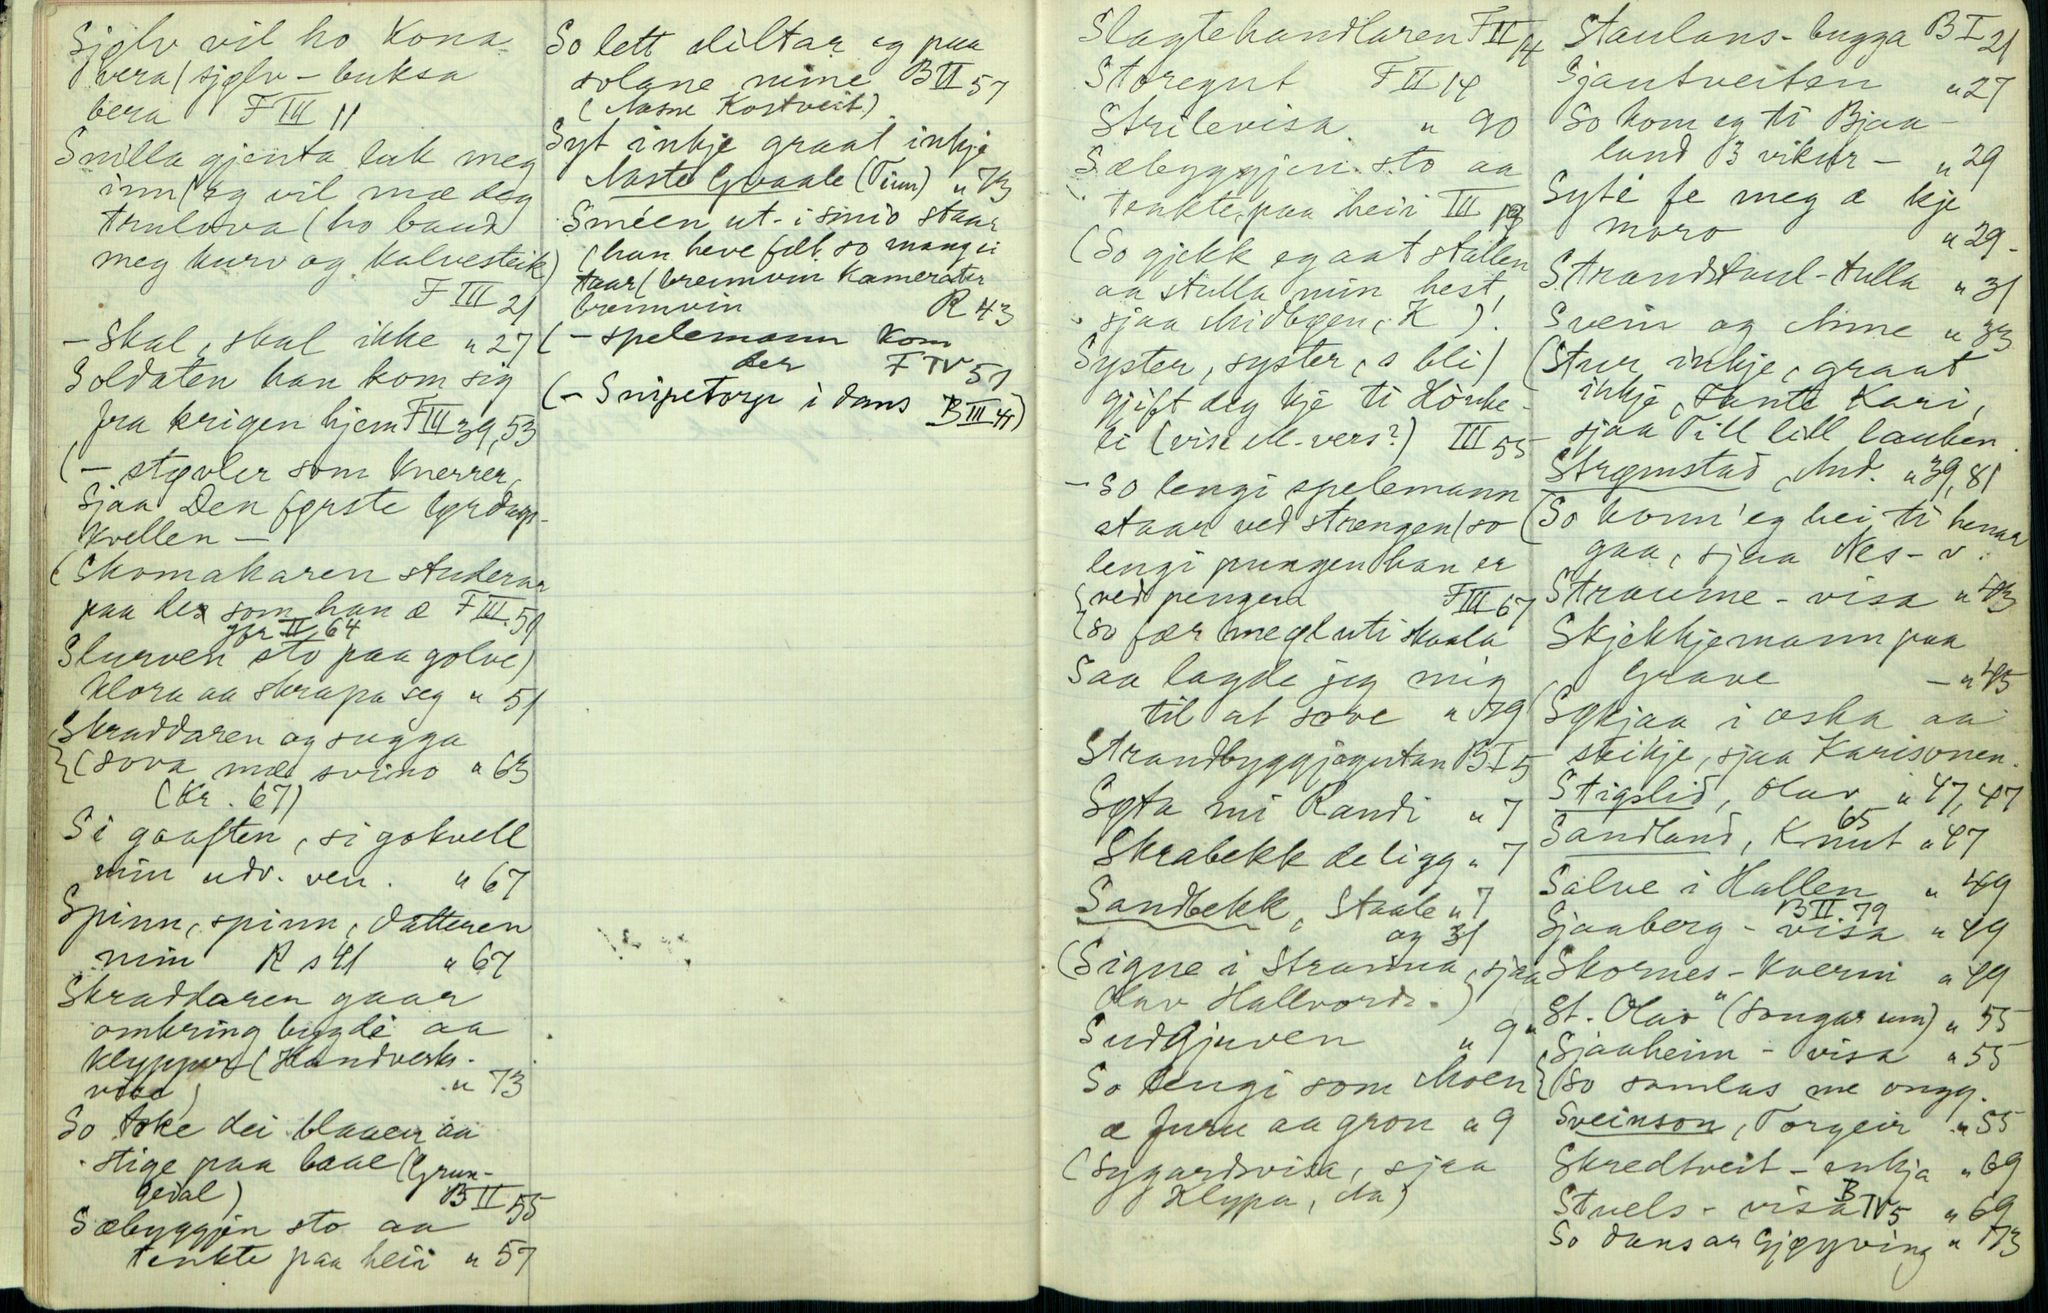 Sjølv vil ho Kona
vera / sjølv - buksa
bera F III 11
Snilla gjenta luk meg
inn / eg vil mæ deg
trulova / ho baud
meg kurv og kalvesteik)
F III 21
- Skal, skal ikke " 27
Soldaten han kom sig
fra krigen hjem F III 39, 53
(- støvler som knerrer,
sjaa Den første lørdags-
kvellen -
(Skomakaren studerar
paa de som han æ F III 51
gfr II, 64
Slurven sto paa golve)
klora aa skrapa seg " 51
Skraddaren og sugga
(sova mæ svino " 63
(Kr. 67)
Si goaften, si gokvell
min udv. ven. " 67
Spinn, spinn, datteren
min R s 41 " 67
Skraddaren gaar
omkring bygdé aa
klypper (Handverks-
visa) " 73
So toke dei blaaen aa
stige paa baae (Grun-
gedal) B II 55
Sæbyggjen sto aa
tenkte paa heii " 57
So lett diltar eg paa
solane mine B II 57
(Aasne Kostveit)
Syt inkje graat inkje
Aaste Gvaale (Tinn) " 73
Sméen ut- i smio staar
(han heve fat so mang ei
taar / brennvin kamerater
brennvin R 43
(- spelemann kom
der F IV 51
(- Snipetorp i dans B III 41)
Slagtehandlaren F II 4
Storegut F II 14
Strilevisa " 90
Sæbyggjen sto aa
tenkte paa heii III 19
(So gjekk eg aat stallen
aa stulla min hest,
sjaa Midbøen, K )
Syster, syster, s bli /
gjift deg kje ti Hönke-
li (vise M-vers?) III 55
- So lengi spelemann
staar ved strengen / so
lengi pungen han er
ved pengen F III 67
so fær me gluti skaala
Saa lagde jeg mig
til at sove " 79
Strandbyggjegutan B I 5
Søta mi Randi " 7
Skrabekk de ligg " 7
Sandbekk, Staale " 7
og 31
(Signe i Straumi, sjaa
Olav Hallvords.)
Sudgjuven " 9
So lengi som Moen
æ furu aa gron " 9
(Sygardsvisa, sjaa
Klypa, Aa)
Staulans-bugga B I 21
Sjautveiten " 27
So kom eg ti Bjaa-
land 3 vikur - " 29
Syté fe meg æ kje
moro " 29
Strandstaul-tulla " 31
Svein og Anne " 33
(Stur inkje, graat
inkje, Fante Kari,
sjaa Till lill lauben
Strømstad, And. " 39, 81
(So komm' eg hei ti henar
gaa, sjaa Nes-v.
Straume-visa " 43
Skjekkjemann paa
Grave - " 45
(Søkjaa i oska aa
steikje, sjaa Karisonen.
Stigslid, Olav " 47, 47
65
Sandland, Knut " 47
Salve i Hallen " 49
B II. 79
Sjaaberg-visa " 49
Skornes-Kverni " 49
St. Olav" (Songar um) " 55
Sjaaheim-visa " 55
(So samlas me ongg.
Sveinson, Torgeir " 55
Skredtveit-enkja " 69
Stuels-visa B IV 5 " 69
So dansar Gjøyving " 73